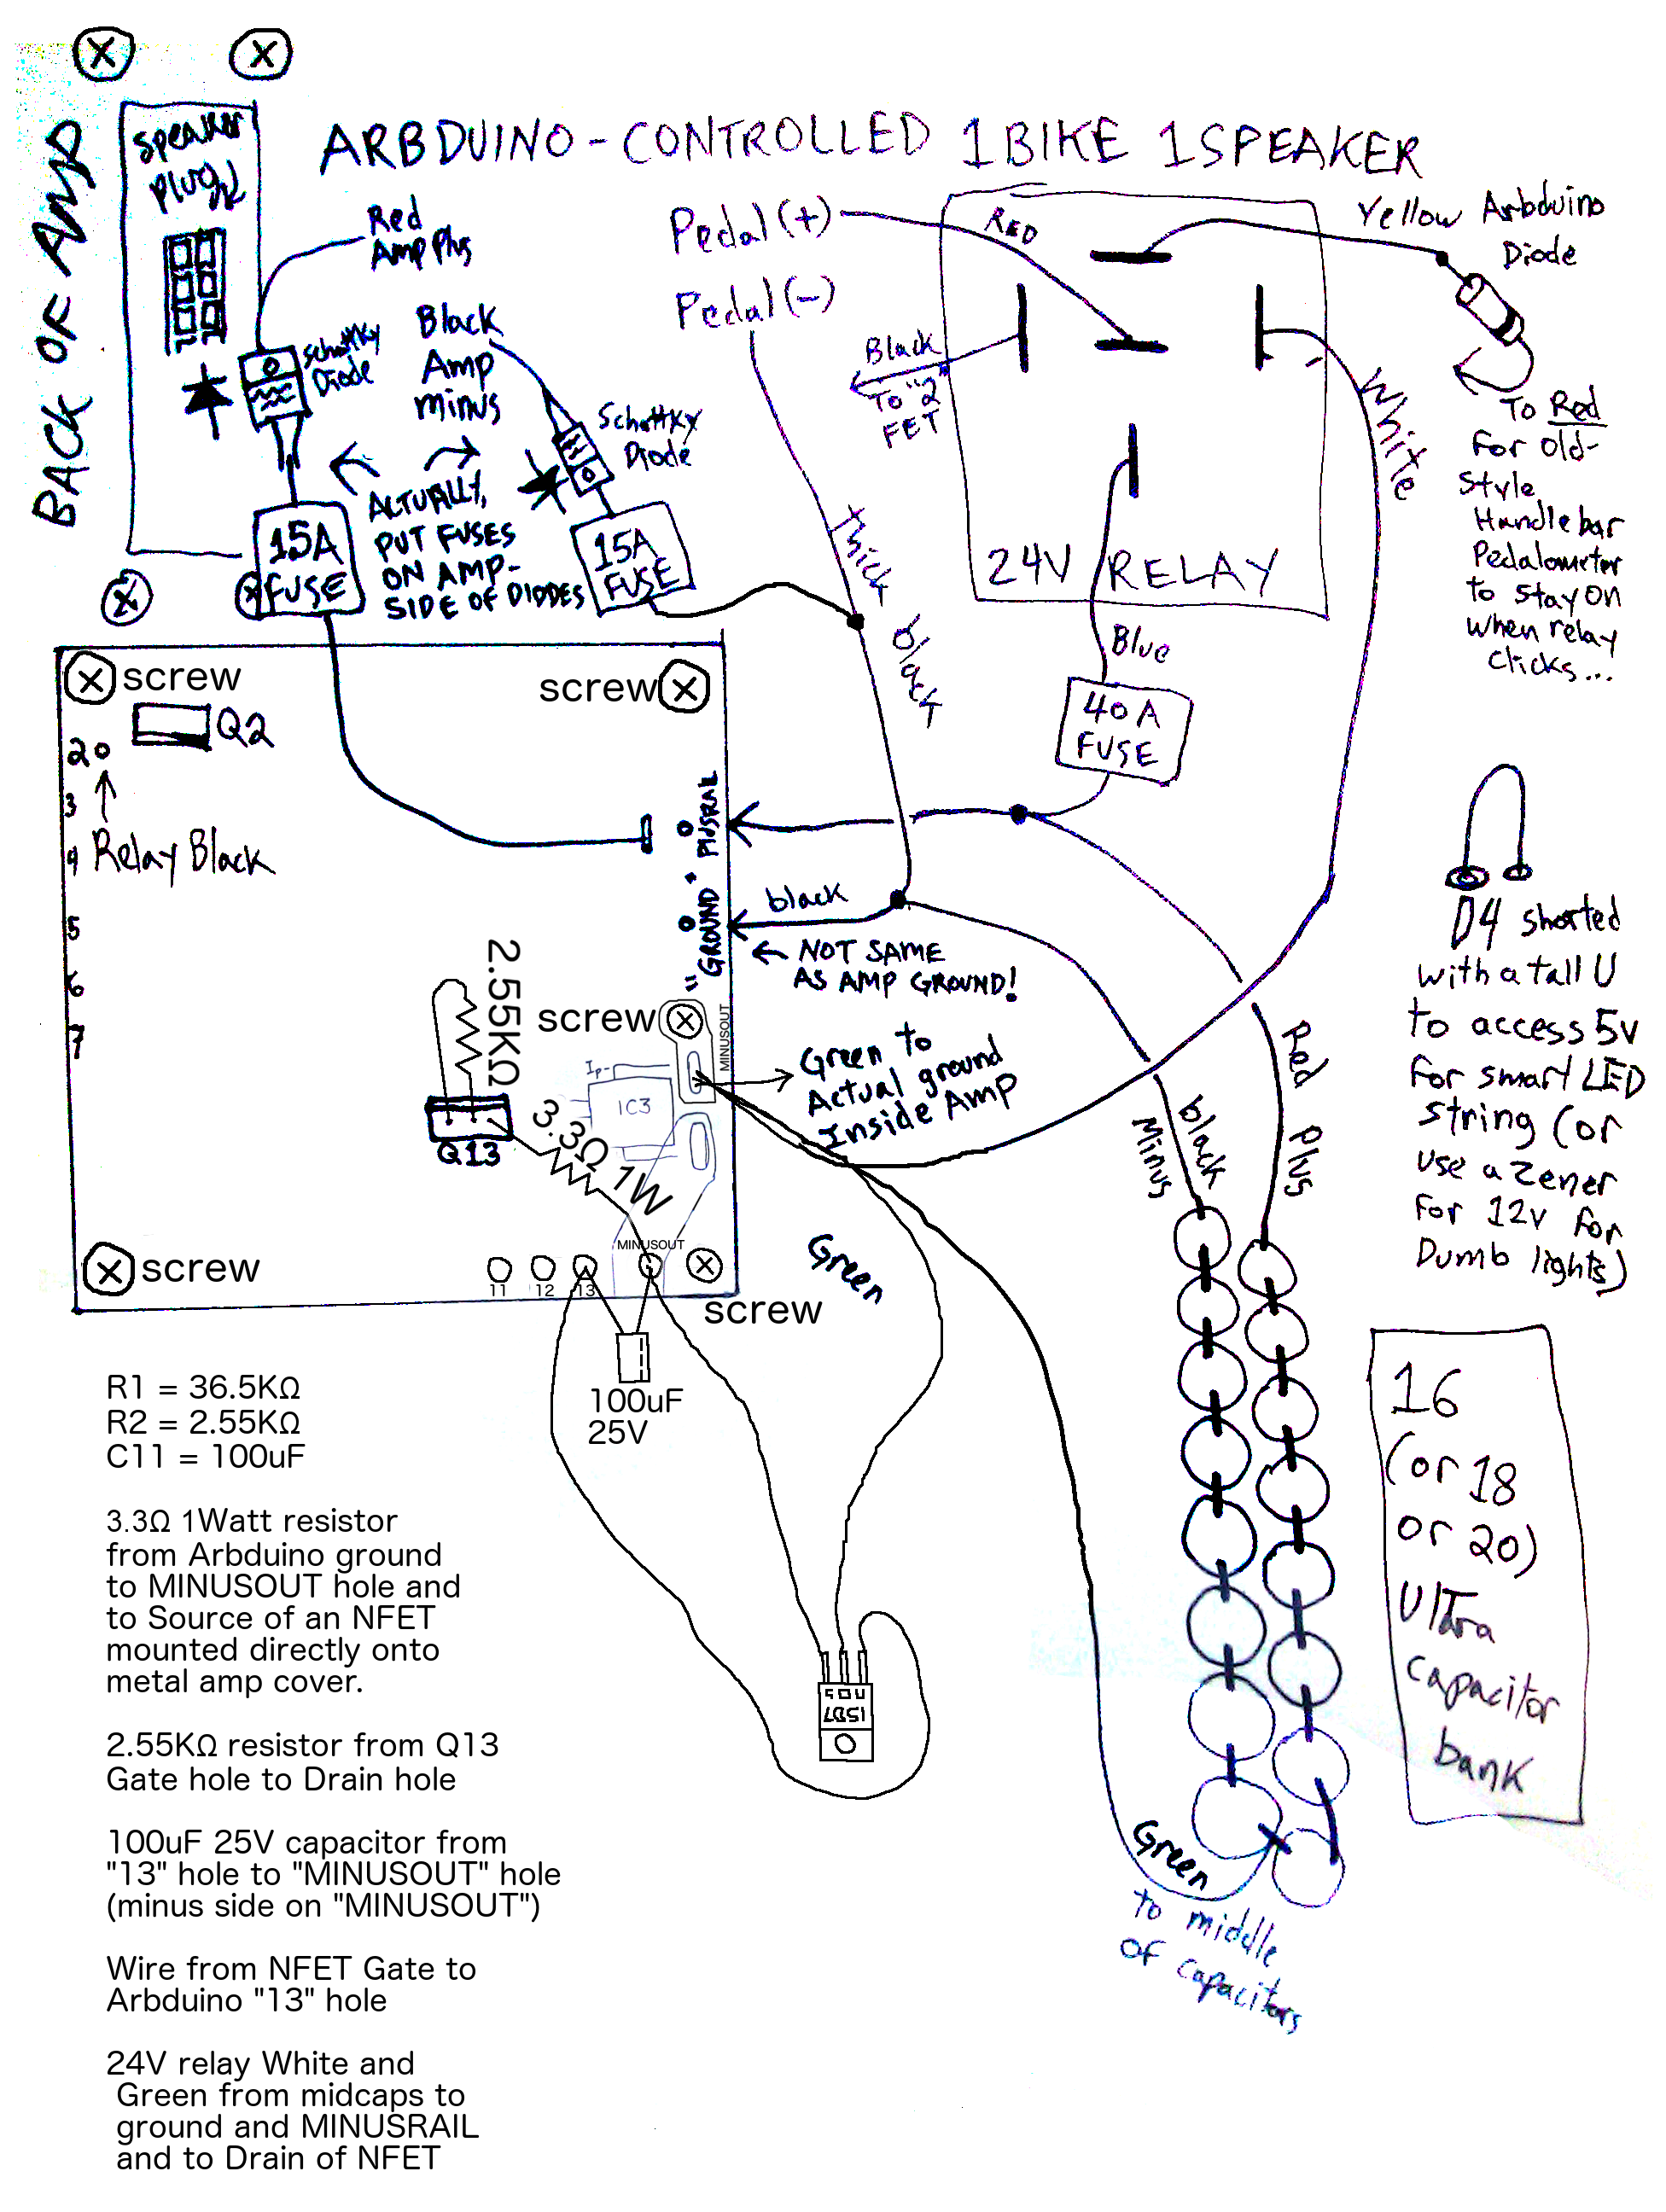 ARBDUINO-CONTROLLED 1BIKE 1SPEAKER
BACK OF AMP
speaker
plug
Red
Amp Plus
Schottky
Diode
Black
Amp
minus
Schottky
Diode
15A
FUSE
ACTUALLY,
PUT FUSES
ON AMP-
SIDE OF DIODES
15A
FUSE
Pedal (+)
Pedal (-)
RED
Black
To "2"
FET
24V RELAY
Yellow Arbduino
Diode
To Red
For Old-
Style
Handlebar
Pedalometer
to stay ON
when relay
clicks...
White
Thick black
Blue
40A
FUSE
screw
screw
Q2
2
3
4
5
6
7
Relay Black
PLUSRAIL
"GROUND"
black
NOT SAME
AS AMP GROUND!
2.55KΩ
screw
MINUSOUT
Ip-
IC3
Q13
3.3Ω 1W
Green to
Actual ground
Inside Amp
MINUSOUT
screw
11
12
13
screw
100uF
25V
Green
black
Minus
Red
Plus
D4 shorted
with a tall U
to access 5v
for smart LED
string (or
use a zener
for 12v for
Dumb lights)
16
(or 18
or 20)
Ultra
capacitor
bank
Green
to middle
of capacitors
R1 = 36.5KΩ
R2 = 2.55KΩ
C11 = 100uF
3.3Ω 1Watt resistor
from Arbduino ground
to MINUSOUT hole and
to Source of an NFET
mounted directly onto
metal amp cover.
2.55KΩ resistor from Q13
Gate hole to Drain hole
100uF 25V capacitor from
"13" hole to "MINUSOUT" hole
(minus side on "MINUSOUT")
Wire from NFET Gate to
Arbduino "13" hole
24V relay White and
Green from midcaps to
ground and MINUSRAIL
and to Drain of NFET